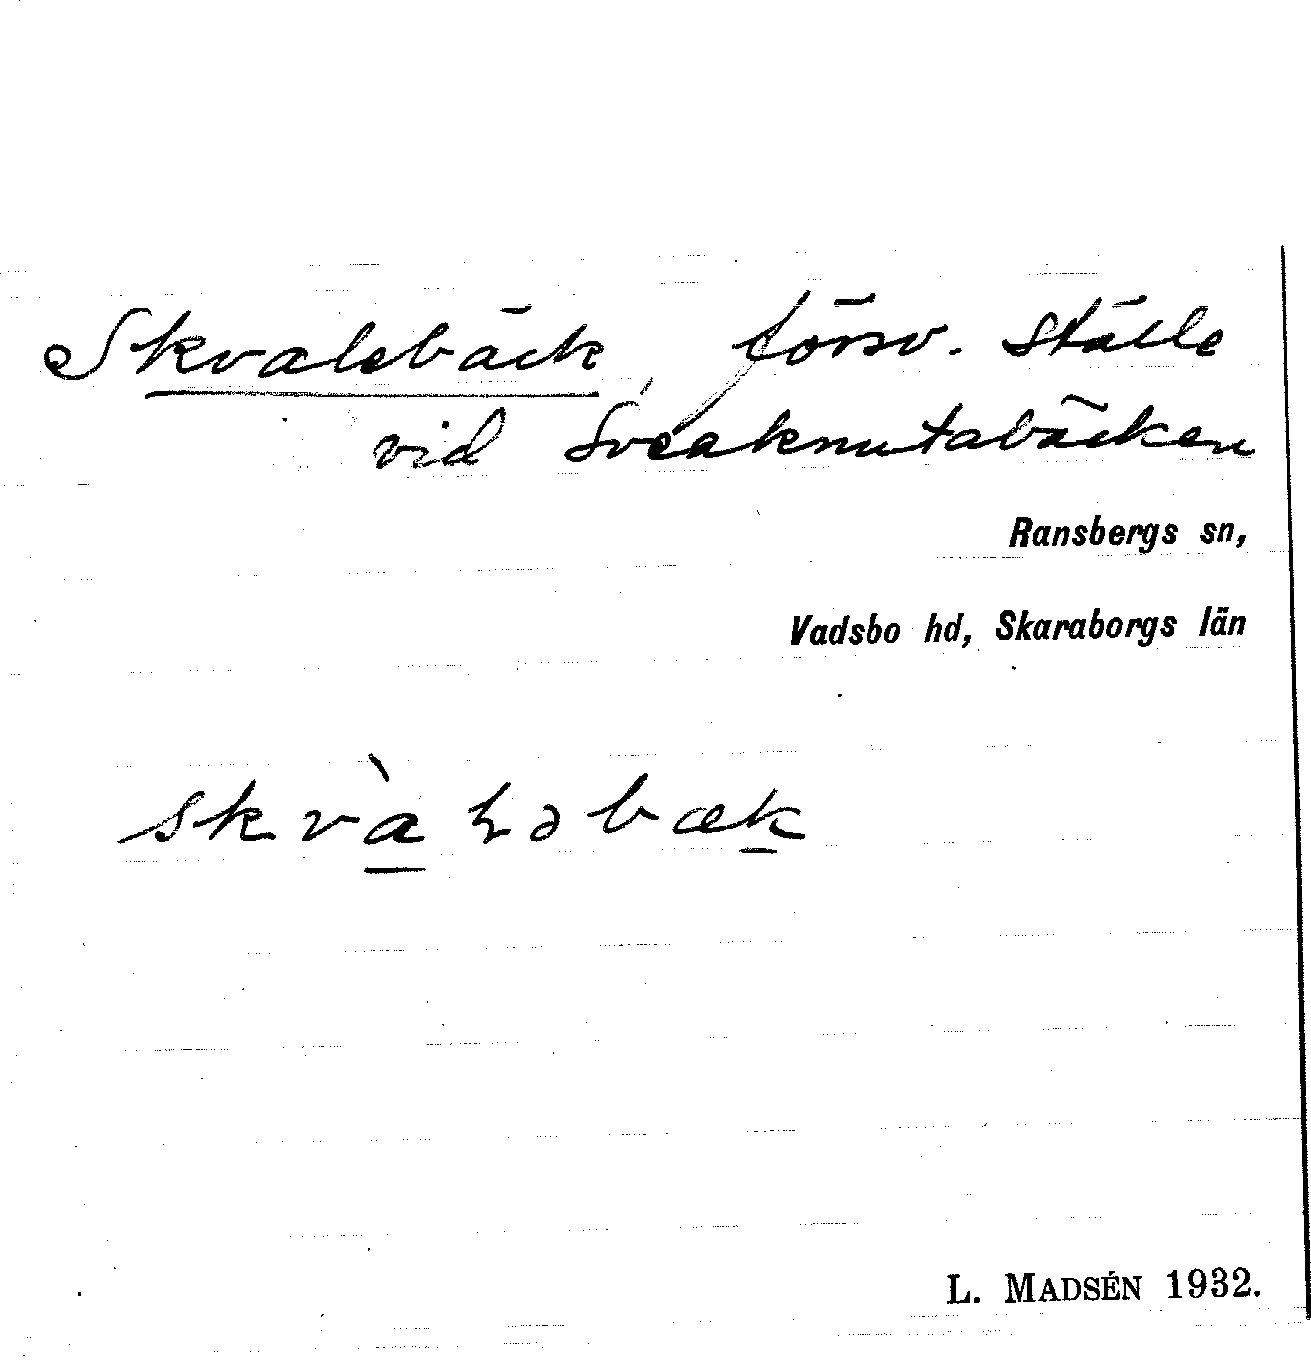 Skvalebäck, försv. ställe
vid Sveaknutabäcken
Ransbergs sn,
Vadsbo hd, Skaraborgs län
skvàɽəbæk
L. MADSÉN 1932.